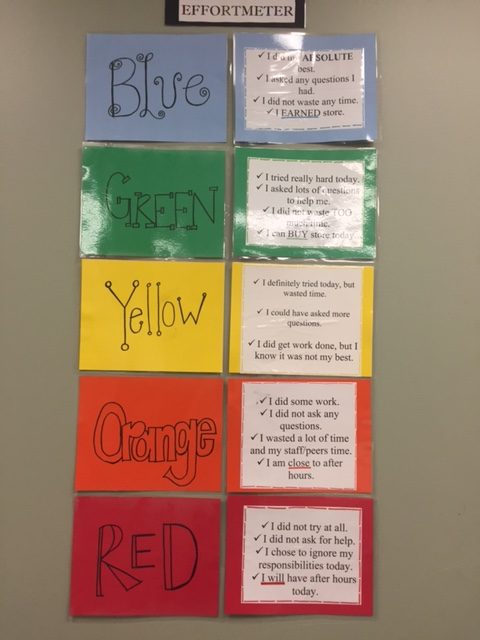 EFFORTMETER
BLue
✓ I did my ABSOLUTE
best.
✓ I asked any questions I
had.
✓ I did not waste any time.
✓ I EARNED store.
GREEN
✓ I tried really hard today.
✓ I asked lots of questions
to help me.
✓ I did not waste TOO
much time.
✓ I can BUY store today.
Yellow
✓ I definitely tried today, but
wasted time.
✓ I could have asked more
questions.
✓ I did get work done, but I
know it was not my best.
Orange
✓ I did some work.
✓ I did not ask any
questions.
✓ I wasted a lot of time
and my staff/peers time.
✓ I am close to after
hours.
RED
✓ I did not try at all.
✓ I did not ask for help.
✓ I chose to ignore my
responsibilities today.
✓ I will have after hours
today.